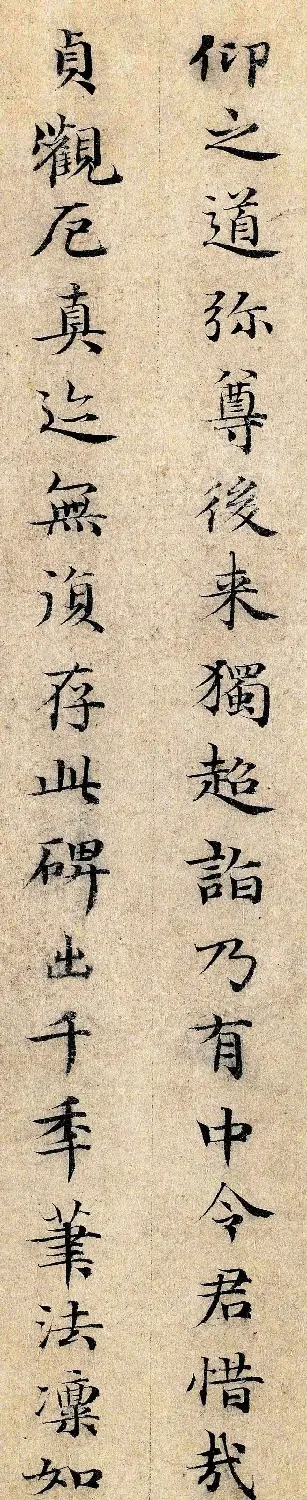 仰之道弥尊後来獨超詣乃有中令君惜哉
貞觀厄真迹無湏存此碑出千季筆法凜如